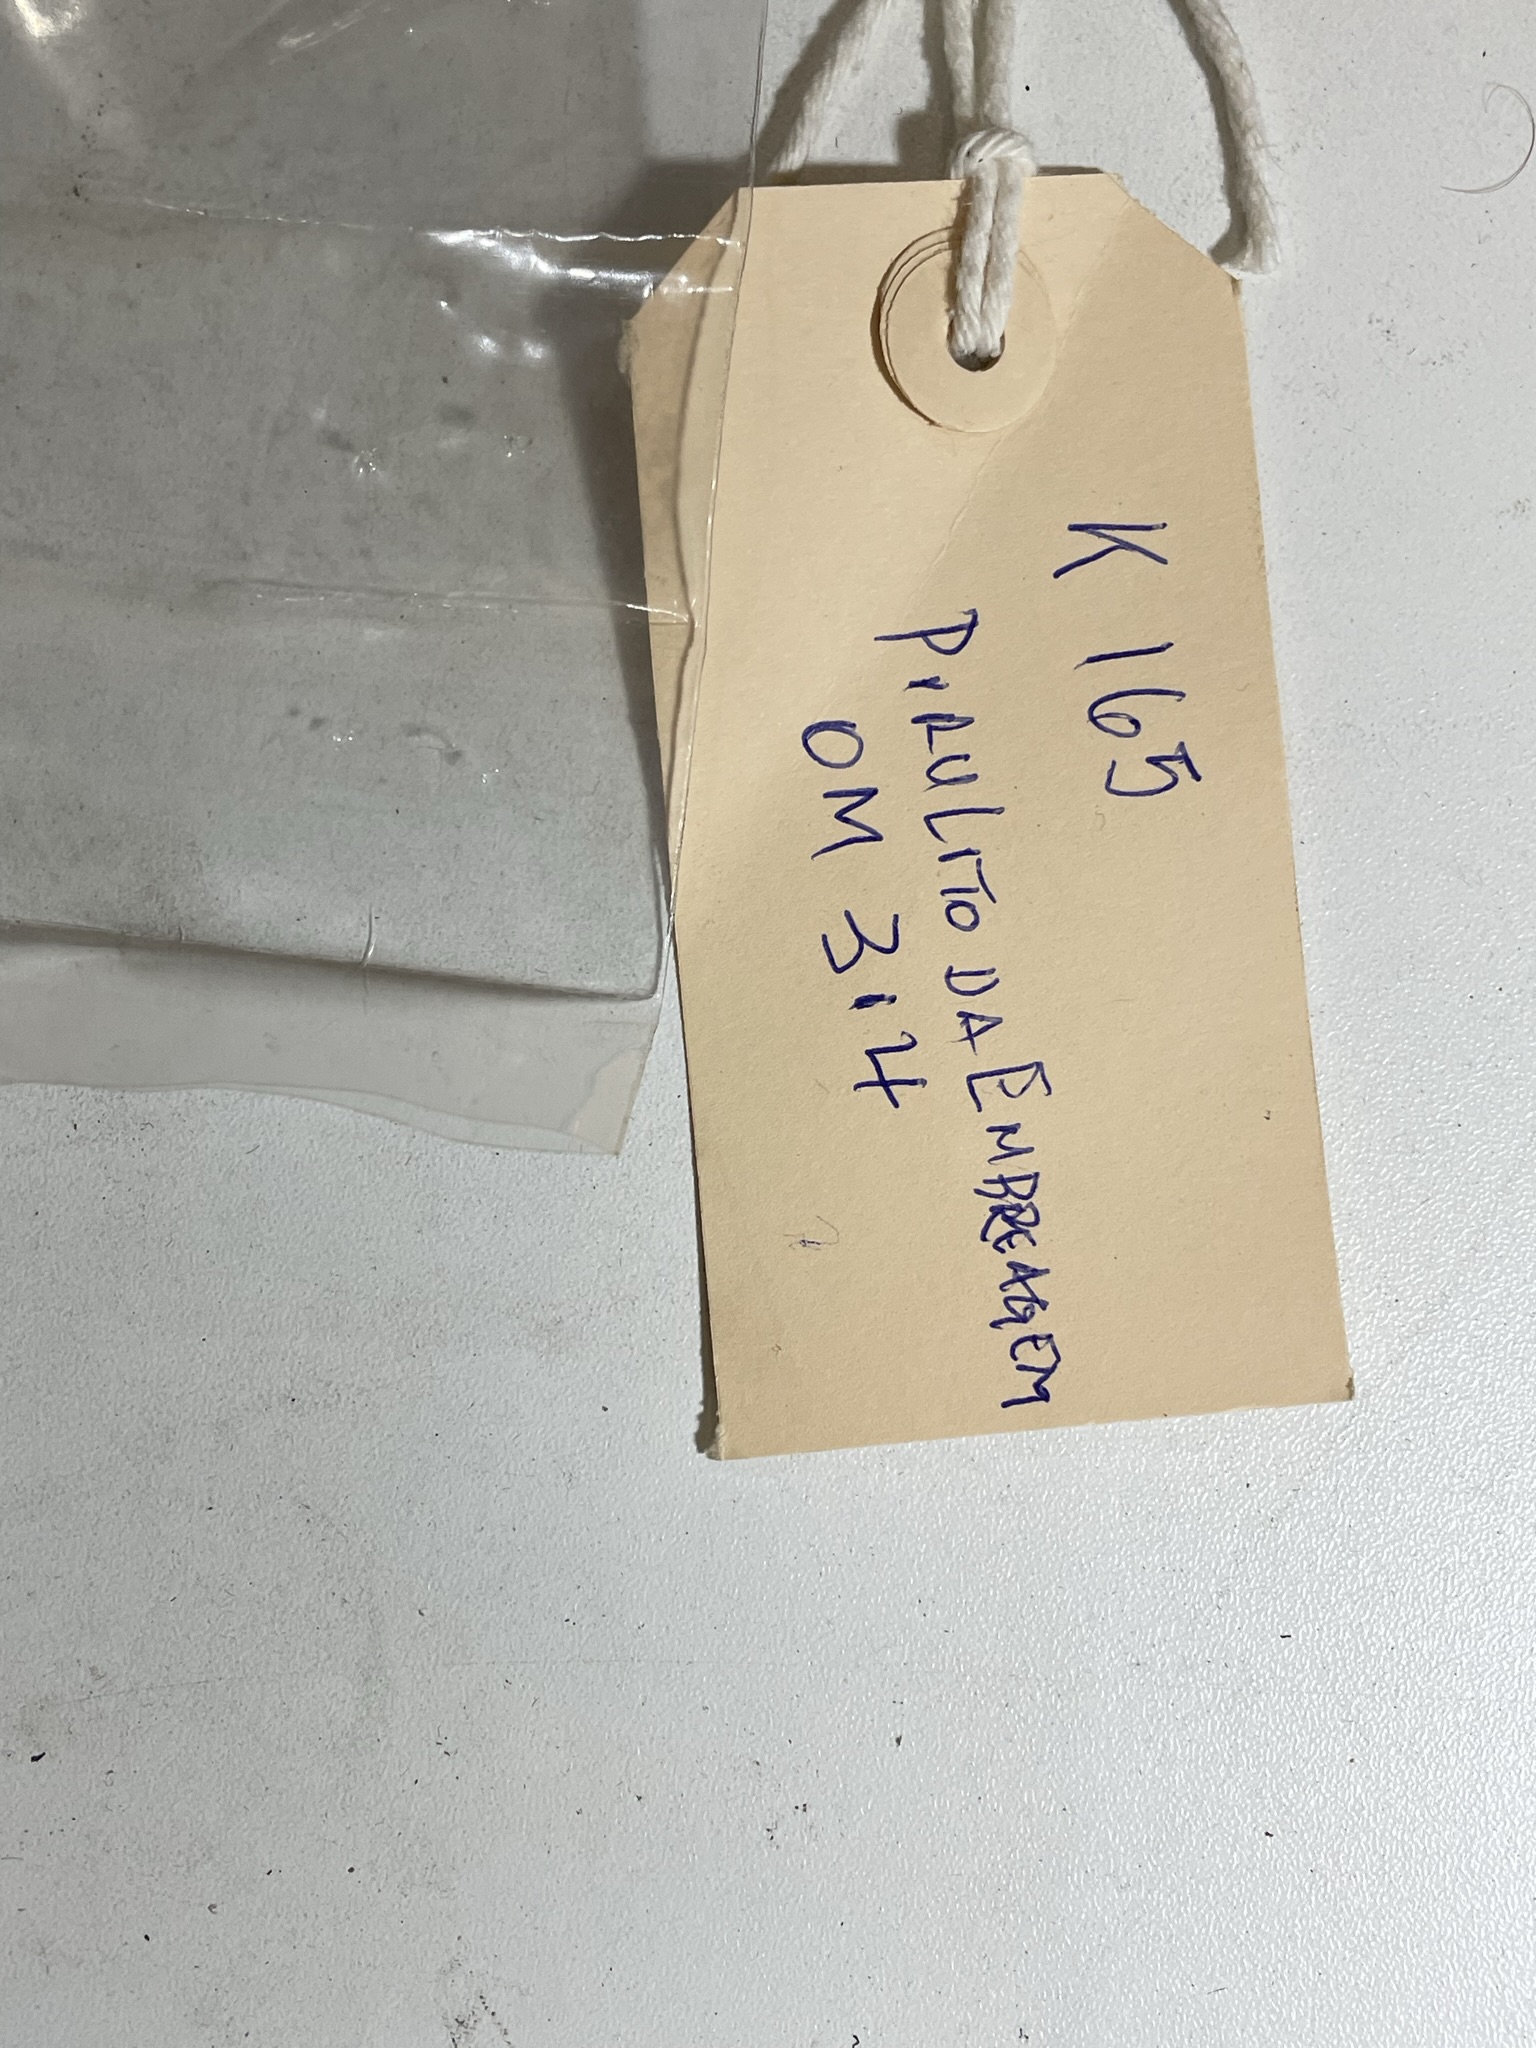 K 165
PIRULITO DA EMBREAGEM
OM 314